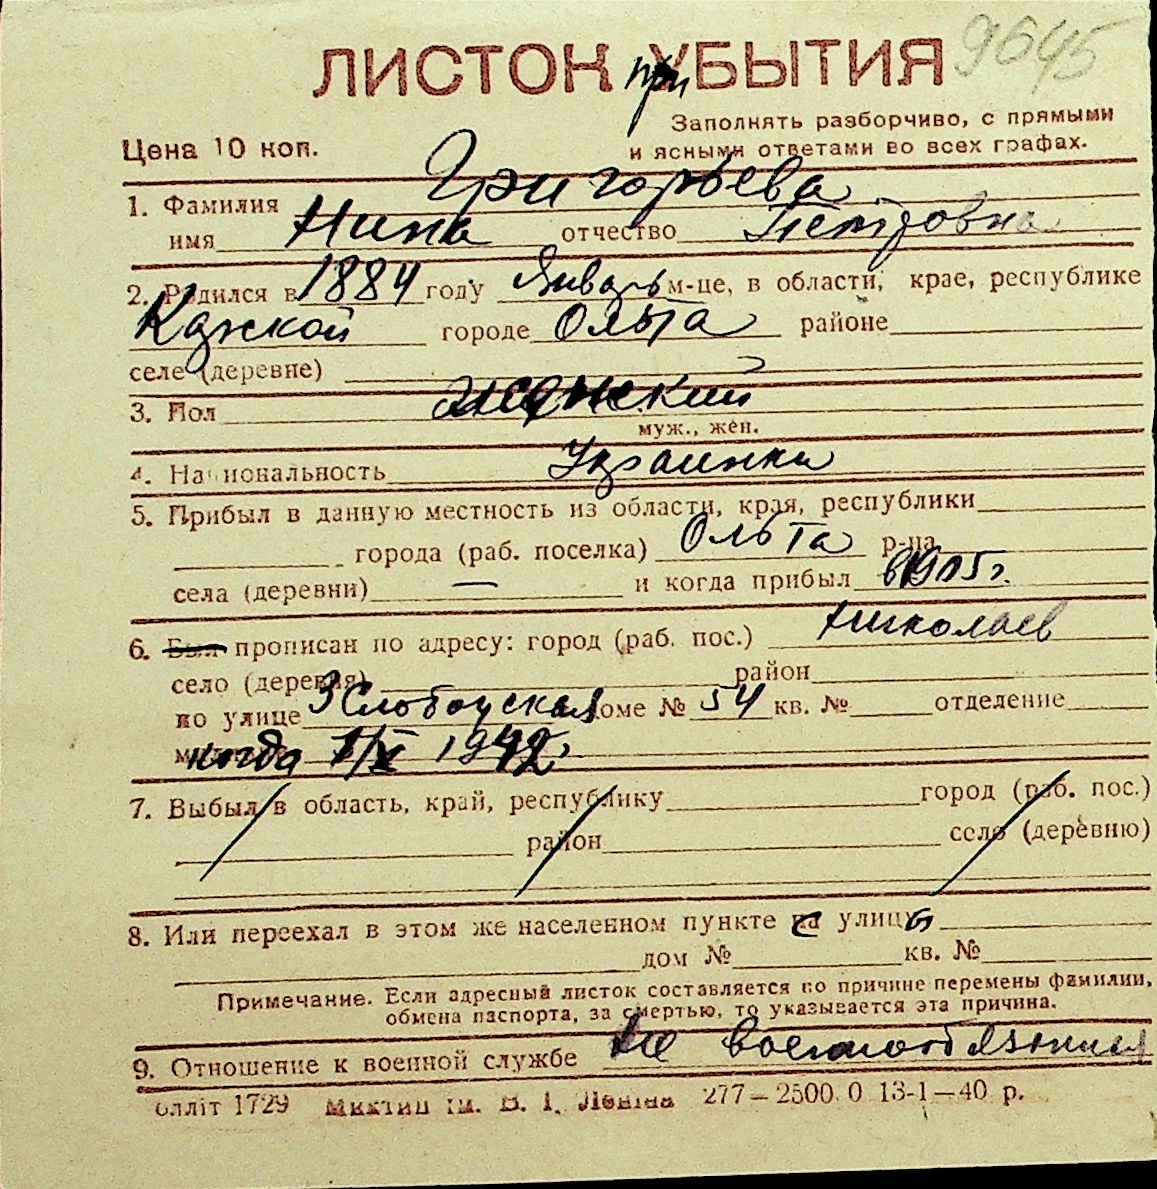 9645
ЛИСТОК при УБЫТИЯ
Заполнять разборчиво, с прямыми
Цена 10 коп. и ясными ответами во всех графах.
1. Фамилия Григорьева
имя Нина отчество Петровна
2. Родился в 1884 году Январь м-це, в области, крае, республике
городе Ольта районе
селе (деревне)
3. Пол женский
муж., жен.
4. Национальность Украинка
5. Прибыл в данную местность из области, края, республики
города (раб. поселка) Ольта р-на
села (деревни) — и когда прибыл в 1915 г.
6. Был прописан по адресу: город (раб. пос.) Николаев
село (деревня) район
по улице 3 Слободская доме № 54 кв. № отделение
когда 1/X 1942 г.
7. Выбыл в область, край, республику город (раб. пос.)
район село (деревню)
8. Или переехал в этом же населенном пункте с улицы
дом № кв. №
Примечание. Если адресный листок составляется по причине перемены фамилии,
обмена паспорта, за смертью, то указывается эта причина.
9. Отношение к военной службе Не военнообязанная
олліт 1729 ім. В. І. Леніна 277—2500. 0 13-1—40 р.